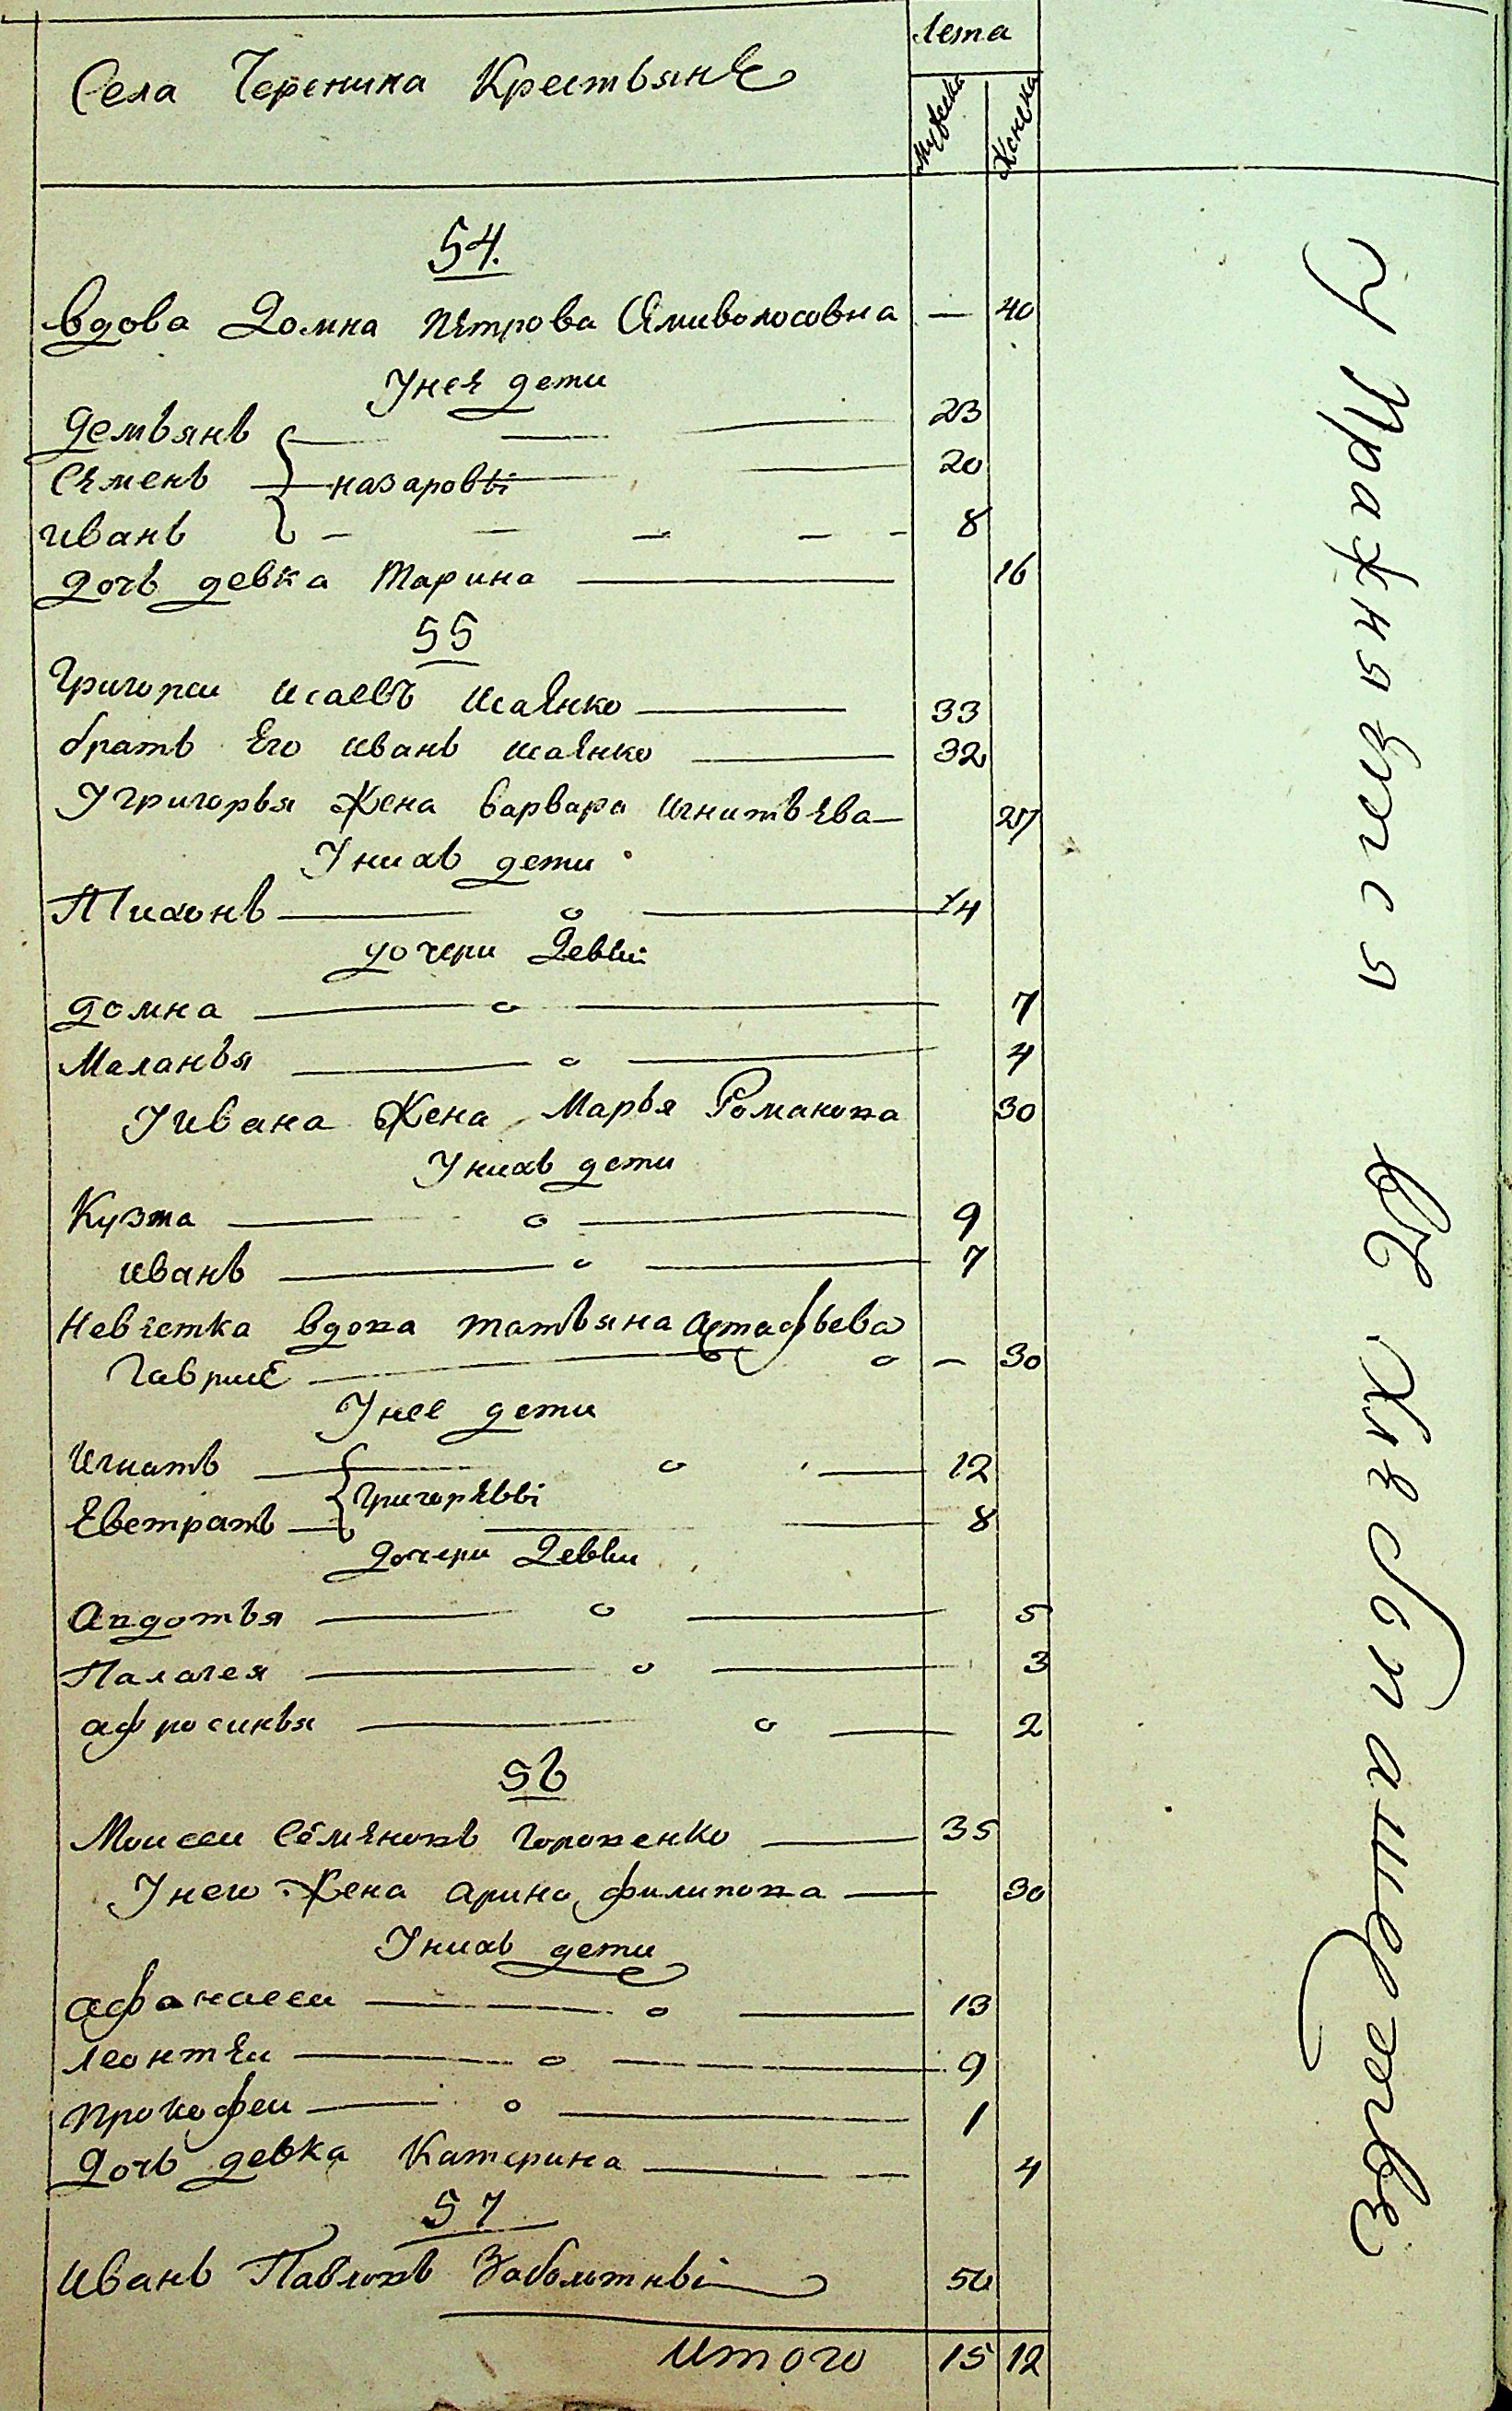 Села Черенина Крестьянѣ
Лета
Мужска
Женска
54.
Вдова Домна Пѣтрова Сяиволосовна — 40
У неѣ дети
Демьянъ 23
Сѣменъ Назаровы 20
Иванъ 8
Дочь девка Марина 16
55
Григореи Исаевъ Исаѣнко 33
братъ Его Иванъ Исаѣнко 32
У Григорья жена Варвара Игнатьѣва 27
У нихъ дети
Тихонъ 14
дочери Девки
Домна 7
Маланья 4
У Ивана жена Марья Романова 30
У нихъ дети
Кузма 9
Иванъ 7
Невѣстка вдова Татьяна Астафьева
Гаврии — 30
У нее дети
Игнатъ 12
Евстратъ Григорѣвы 8
Дочери Девки
Авдотья 5
Палагея 3
Афросинья 2
56
Моисеи Сѣмѣновъ Горовенко 35
У него жена Арина Филипова 30
У нихъ дети
Афанасеи 13
Леонтѣи 9
Прокофеи 1
Дочь девка Катерина 4
57
Иванъ Павловъ Заболотны 50
Итого 15 12
Упражняется въ Хлебопашестве